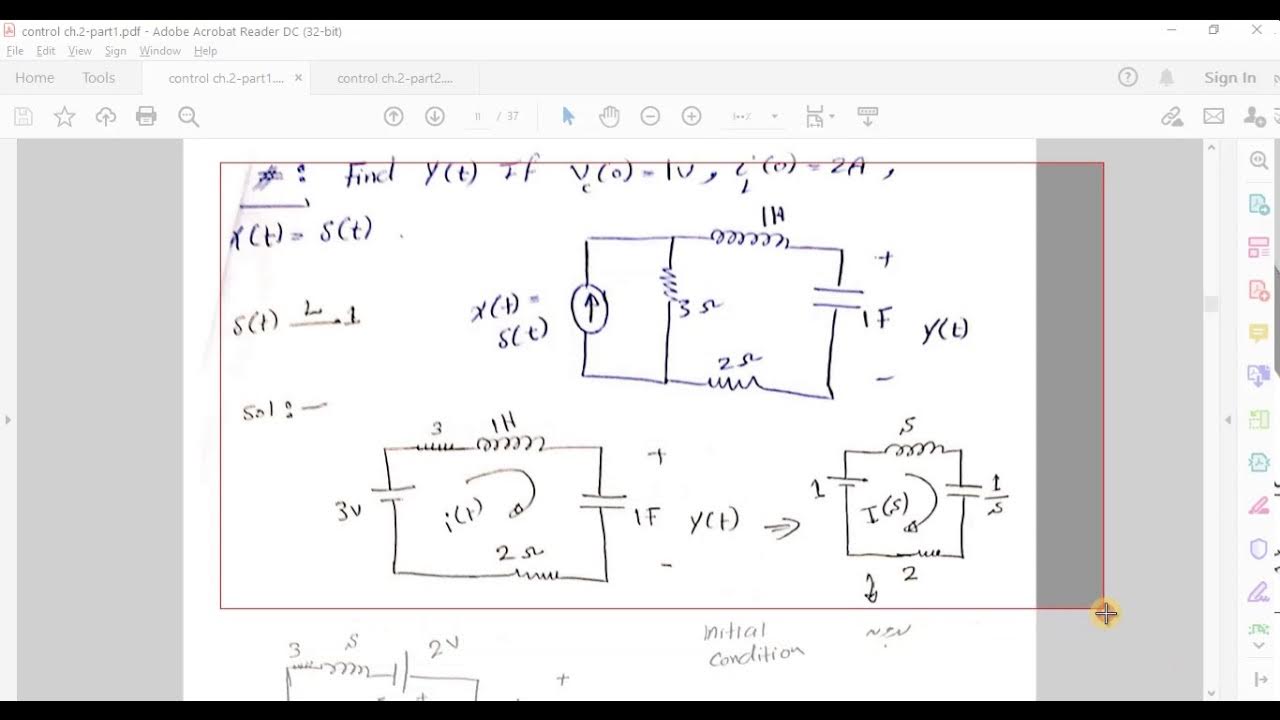 control ch.2-part1.pdf - Adobe Acrobat Reader DC (32-bit)
File Edit View Sign Window Help
Home Tools control ch.2-part1.... × control ch.2-part2.... Sign In
11 / 37
*: Find y(t) If Vc(0)=1V, iL(0)=2A,
x(t) = δ(t) .
1H
+
x(t) =
δ(t)
3Ω
1F
y(t)
δ(t) L 1
2Ω
-
Sol:-
3 1H
+
3V
i(t)
1F y(t) ⇒
2Ω
-
S
1
I(s)
1/S
2
Initial
condition
3 S 2V
+
+